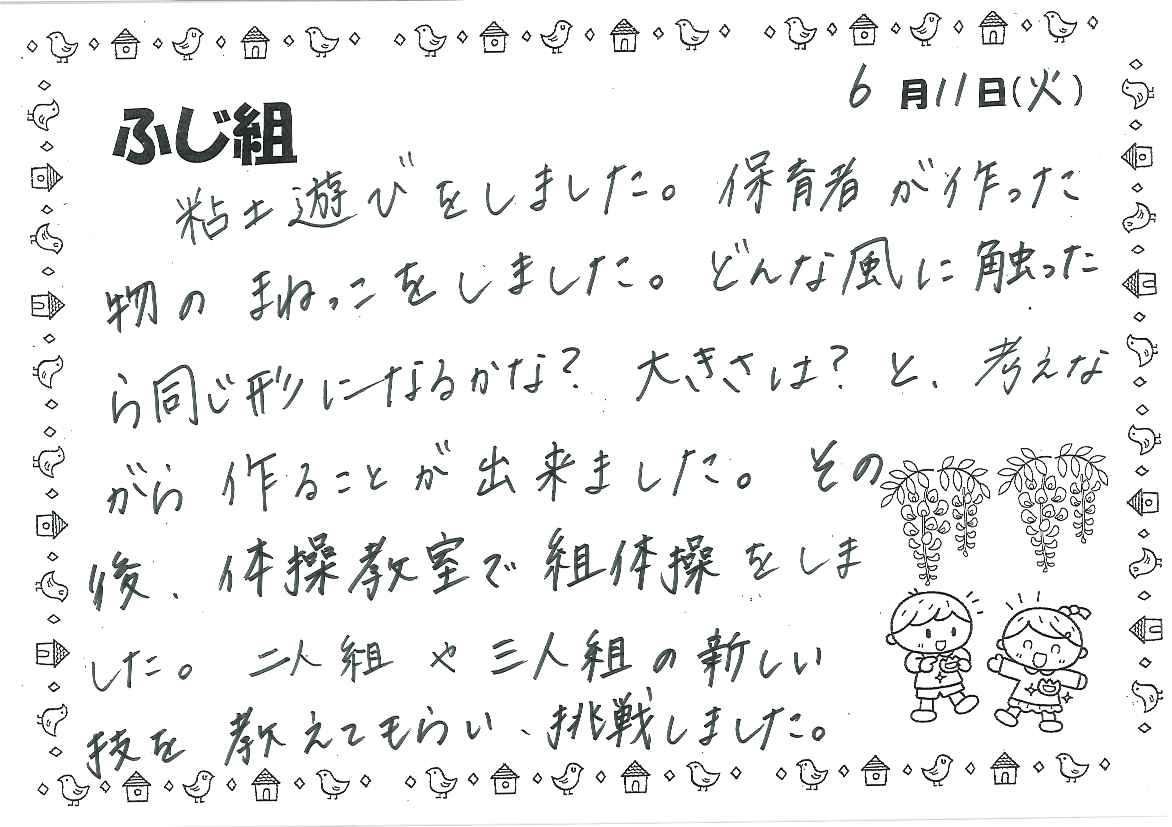 6月11日(火)
ふじ組
粘土遊びをしました。保育者が作った
物のまねっこをしました。どんな風に触った
ら同じ形になるかな？大きさは？と、考えな
がら作ることが出来ました。その
後、体操教室で組体操をしま
した。二人組や三人組の新しい
技を教えてもらい、挑戦しました。